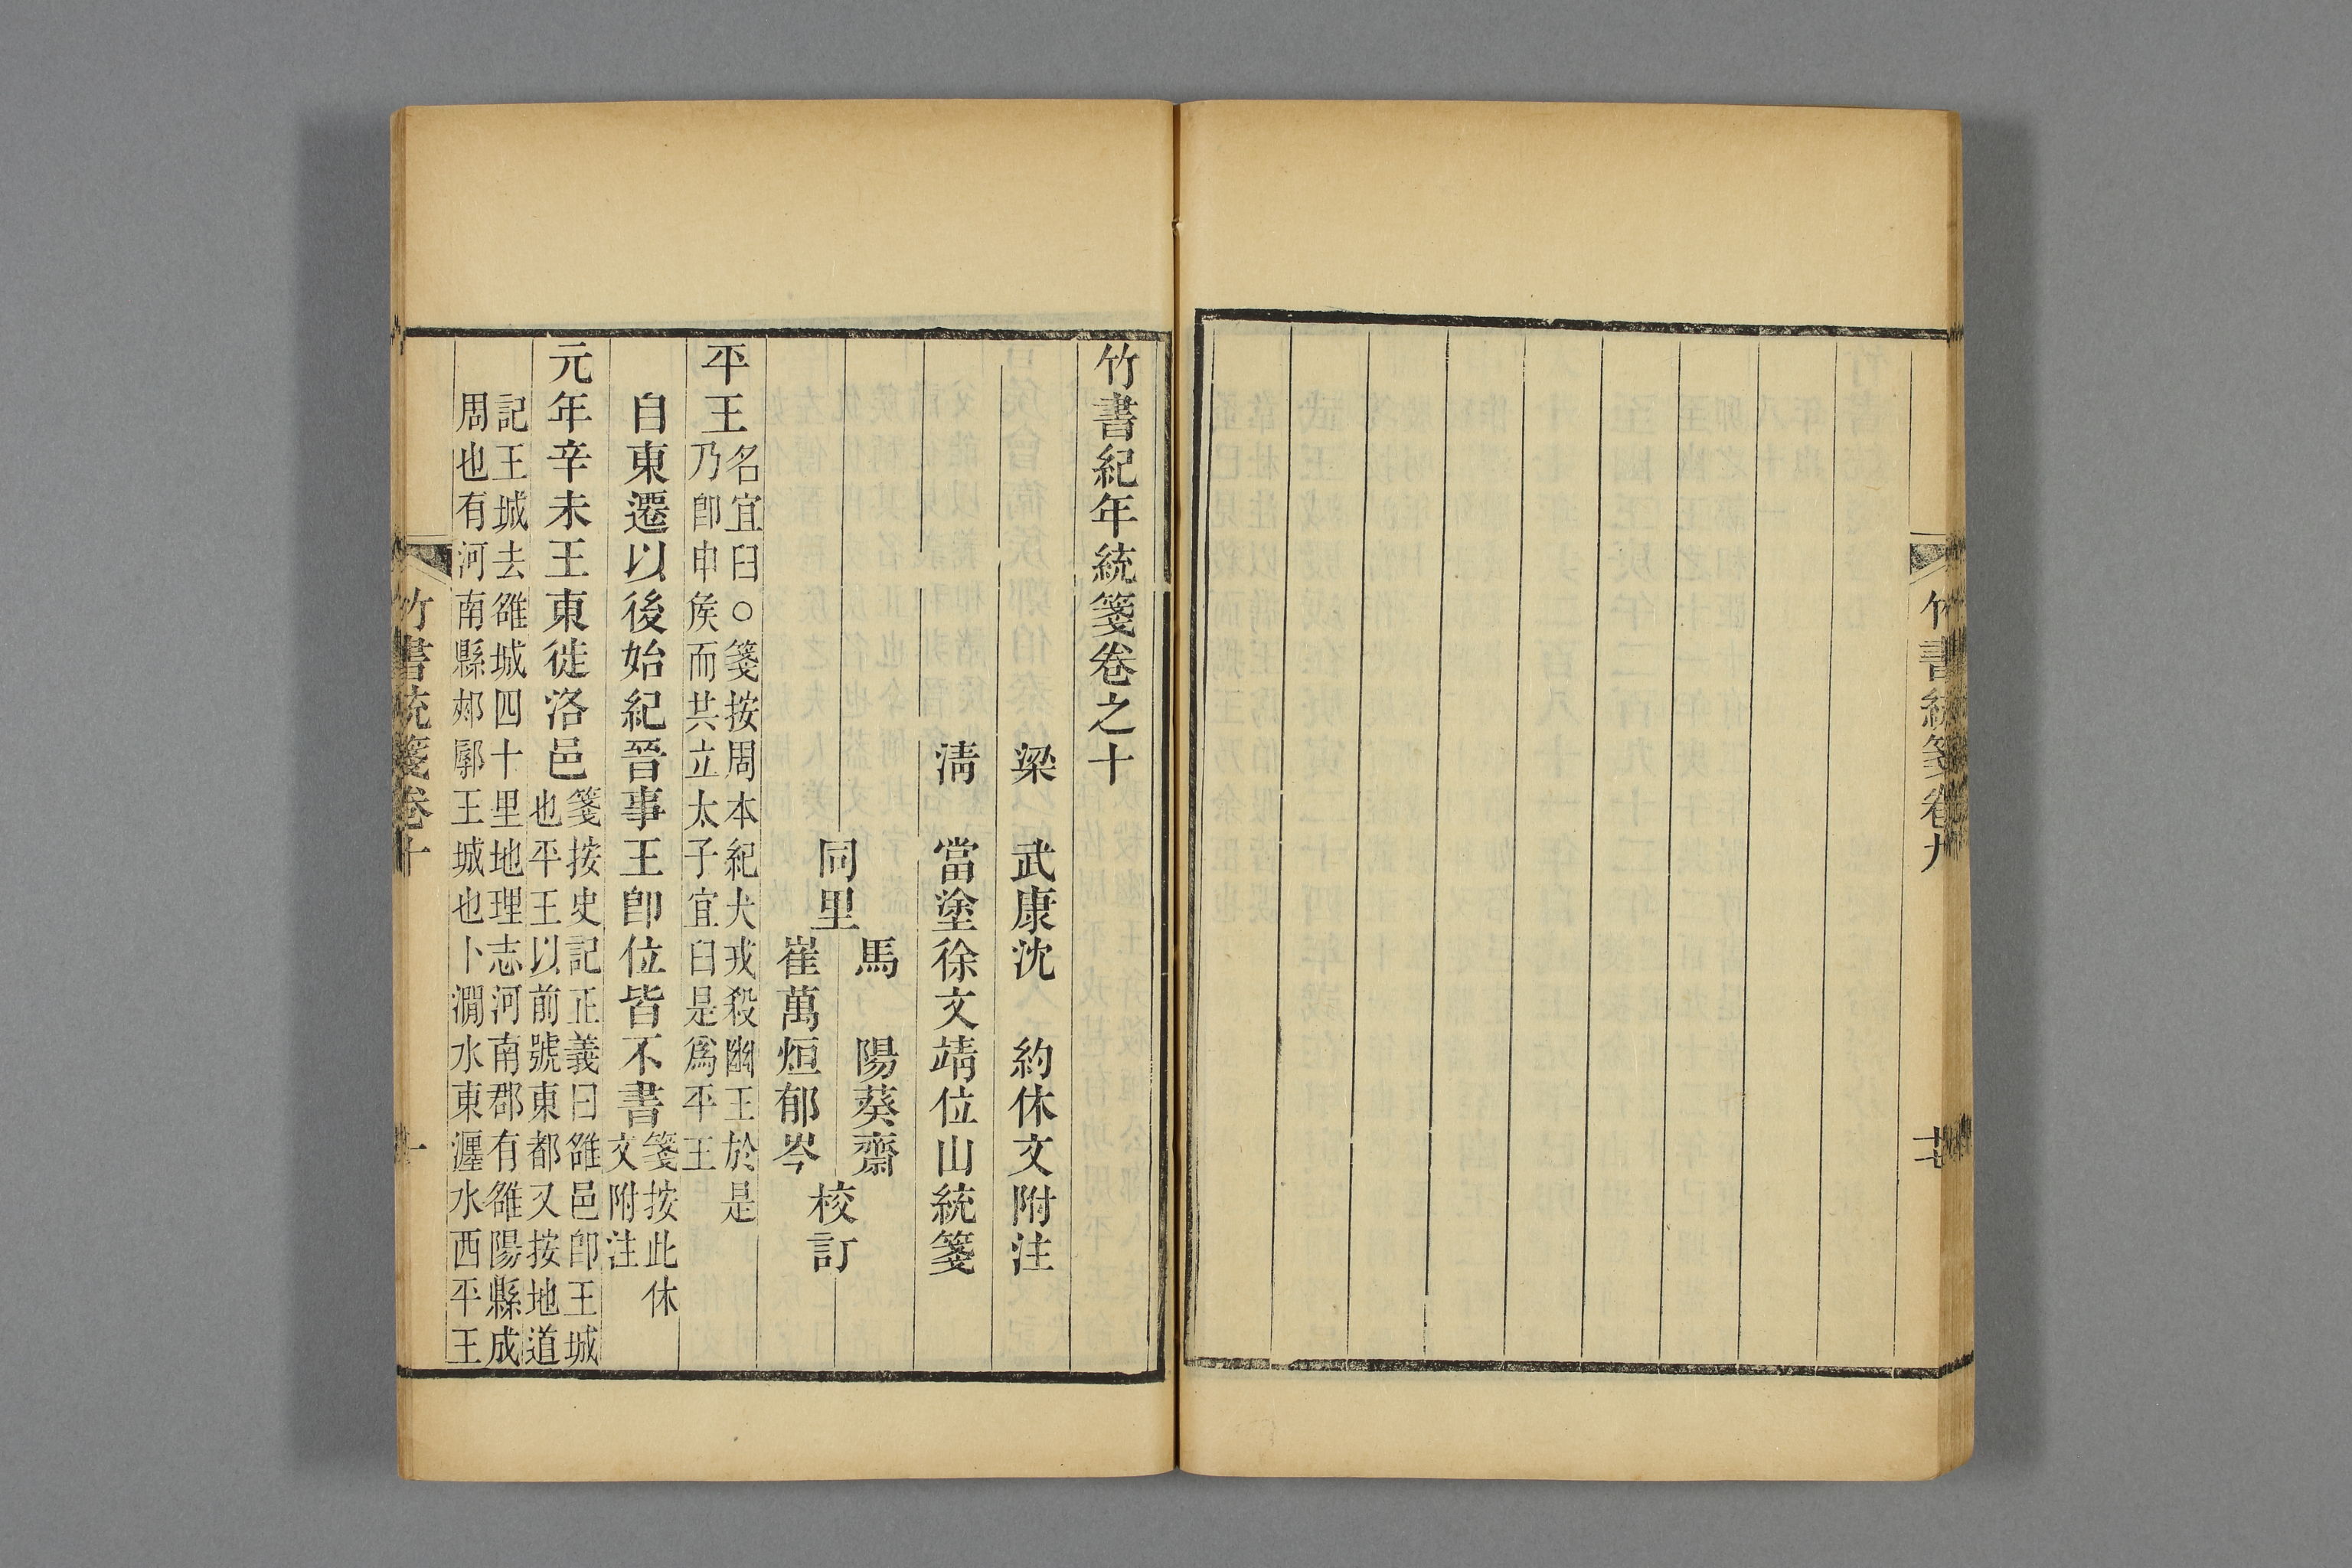 竹書統箋卷九
竹書紀年統箋卷之十
梁 武康沈 約休文附注
清 當塗徐文靖位山統箋
同里
馬 陽葵齋
崔萬烜郁岑
校訂
平王
名宜臼○箋按周本紀犬戎殺幽王於是
乃卽申侯而共立太子宜臼是爲平王
自東遷以後始紀晉事王卽位皆不書
箋按此休
文附注
元年辛未王東徙洛邑
箋按史記正義曰雒邑卽王城
也平王以前號東都又按地道
記王城去雒城四十里地理志河南郡有雒陽縣成
周也有河南縣郟鄏王城也卜澗水東瀍水西平王
竹書統箋卷十
一